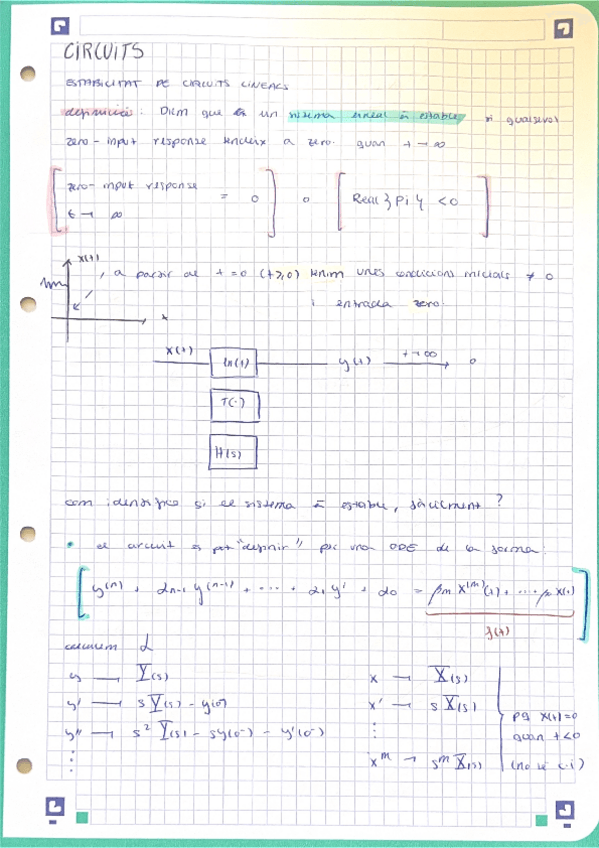 CIRCUITS
ESTABILITAT DE CIRCUITS LINEALS
definició: Diem que un sistema lineal és estable, si qualsevol
zero-input response tendeix a zero quan t → ∞
[ zero-input response = 0
t → ∞ ] o [ Real{Pi} < 0 ]
x(t)
, a partir de t=0 (t≥0) tenim unes condicions inicials ≠ 0
i entrada zero.
x(t) h(t) y(t) t→∞ 0
T(·)
H(s)
com identifico si el sistema és estable, fàcilment?
• el circuit es pot "definir" per una ODE de la forma:
[ y⁽ⁿ⁾ + αn-1 y⁽ⁿ⁻¹⁾ + ··· + α1 y' + α0 = βm x⁽ᵐ⁾(t) + ··· β0 x(t) ]
f(t)
L
y → Y(s) x → X(s)
y' → sY(s) - y(0⁻) x' → sX(s) pq x(t)=0
y'' → s² Y(s) - sy(0⁻) - y'(0⁻) ⋮ quan t<0
⋮ xᵐ → sᵐ X(s) (no té c.i)